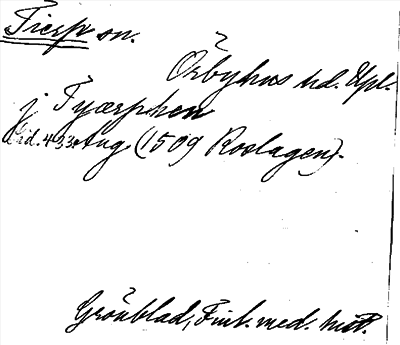 Tierp sn.
Örbyhus hd. Upl.
j Tyærphen
sid. 433. Aug (1509 Roslagen).
Grönblad, Finl. med. hist.